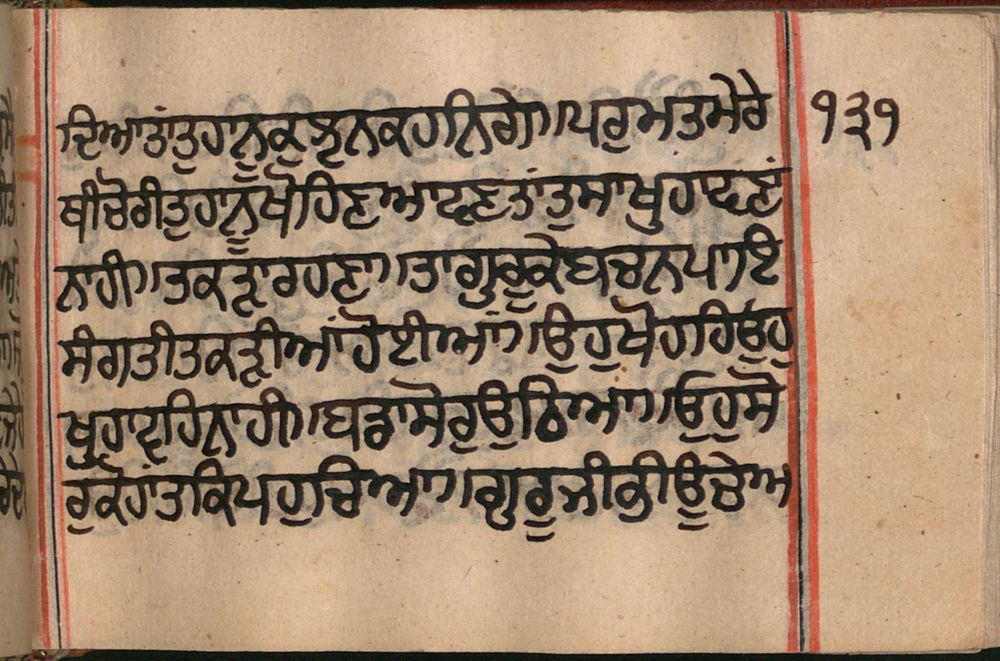 ਦਿਆ ਤਾਂ ਤੁਹਾਨੂ ਕੁਝ ਨ ਕਹਨਿਗੇ॥ ਪਰੁ ਮਤ ਮੇਰੈ ੧੩੧
ਥੀ ਚੋਰੀ ਤੁਹਾਨੂੰ ਖੋਹਿਣ ਆਵਣ ਤਾਂ ਤੁਸਾ ਖੁਹਾਵਣਾਂ
ਨਾਹੀ॥ ਤਕੜਾ ਰਹਣਾ॥ ਤਾ ਗੁਰੂ ਕੇ ਬਚਨ ਪਾਇ
ਸੰਗਤੀ ਤਕੜੀਆਂ ਹੋਈਆਂ॥ ਉਹੁ ਖੋਹਹਿ ਉਹੁ
ਖੁਹਾਵਹਿ ਨਾਹੀ॥ ਬਡਾ ਸੋਰੁ ਉਠਿਆ॥ ਓਹੁ ਸੋ
ਰੁ ਕੋਹਾਂ ਤਕਿ ਪਹੁਚਿਆ॥ ਗੁਰੂ ਜੀ ਕੀ ਊਚੇ ਅ